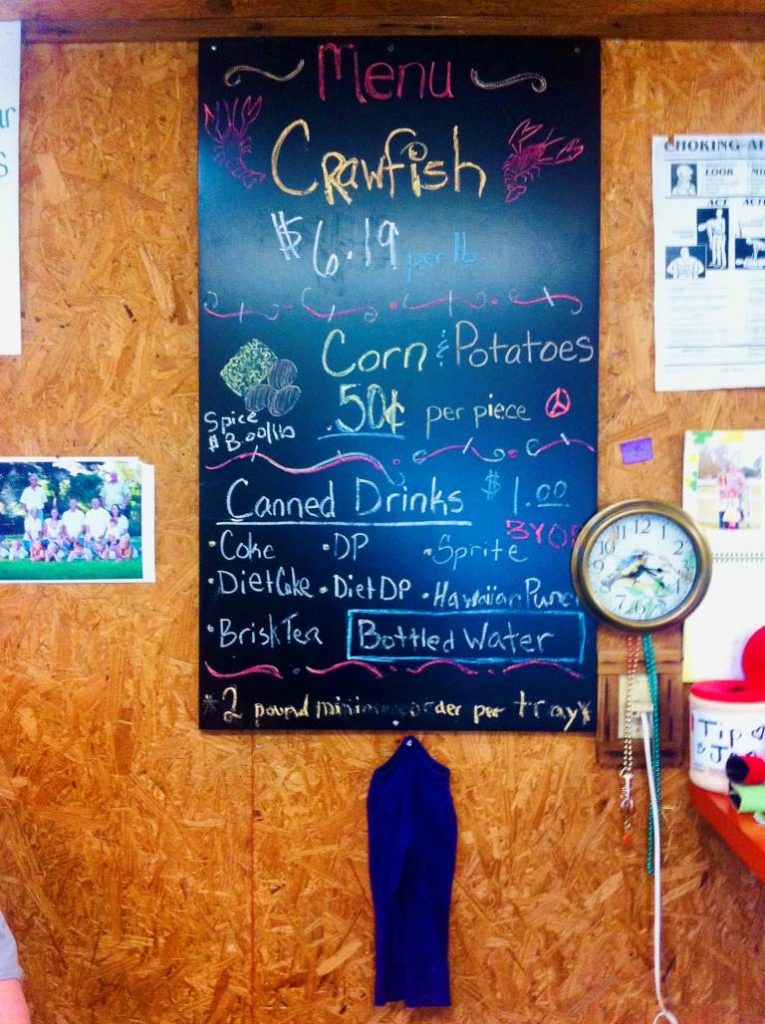 Menu
Crawfish
$6.19 per lb
Corn & Potatoes
.50¢ per piece
Spice
$3.00/lb
Canned Drinks $1.00
BYO
• Coke • DP • Sprite
• Diet Coke • Diet DP • Hawaiian Punc
• Brisk Tea Bottled Water
*2 pound minimum order per tray*
CHOKING
LOOK
ACT ACT
12 1 2 3 4 5 6 7 8 9 10 11
Tip